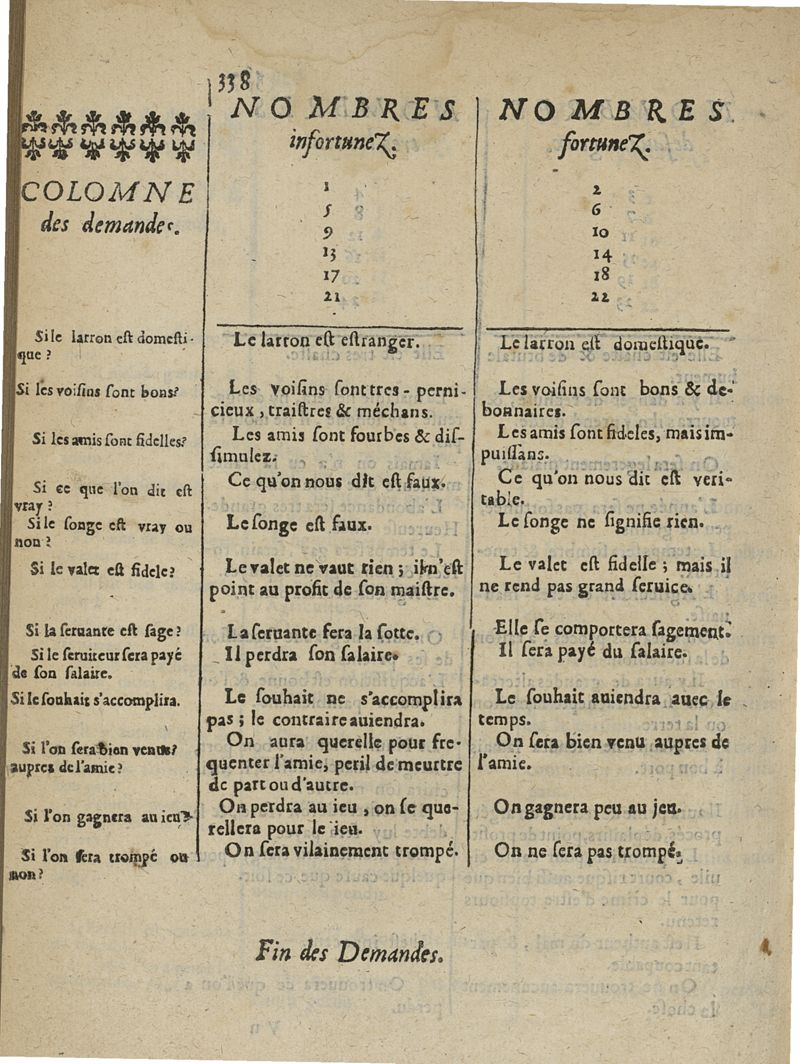 338
COLOMNE
des demandes.
Si le larron est domesti-
que ?
Si les voisins sont bons?
Si les amis sont fidelles?
Si ce que l'on dit est
vray ?
Si le songe est vray ou
non ?
Si le valet est fidele?
Si la seruante est sage ?
Si le seruiteur sera payé
de son salaire.
Si le souhait s'accomplira.
Si l'on sera bien venu?
aupres de l'amie ?
Si l'on gagnera au ieu?
Si l'on sera trompé ou
non ?
NOMBRES
infortunez.
1
5
9
13
17
21
Le larron est estranger.
Les voisins sont tres-perni-
cieux, traistres & méchans.
Les amis sont fourbes & dis-
simulez.
Ce qu'on nous dit est faux.
Le songe est faux.
Le valet ne vaut rien ; il n'est
point au profit de son maistre.
La seruante fera la sotte.
Il perdra son salaire.
Le souhait ne s'accomplira
pas ; le contraire auiendra.
On aura querelle pour fre-
quenter l'amie, peril de meurtre
de part ou d'autre.
On perdra au ieu, on se que-
rellera pour le ieu.
On sera vilainement trompé.
NOMBRES
fortunez.
2
6
10
14
18
22
Le larron est domestique.
Les voisins sont bons & de-
bonnaires.
Les amis sont fideles, mais im-
puissans.
Ce qu'on nous dit est veri-
table.
Le songe ne signifie rien.
Le valet est fidelle ; mais il
ne rend pas grand seruice.
Elle se comportera sagement.
Il sera payé du salaire.
Le souhait auiendra auec le
temps.
On sera bien venu aupres de
l'amie.
On gagnera peu au jeu.
On ne sera pas trompé.
Fin des Demandes.